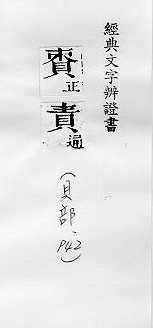 經典文字辨證書
𧶷正
責通
(貝部、P42)